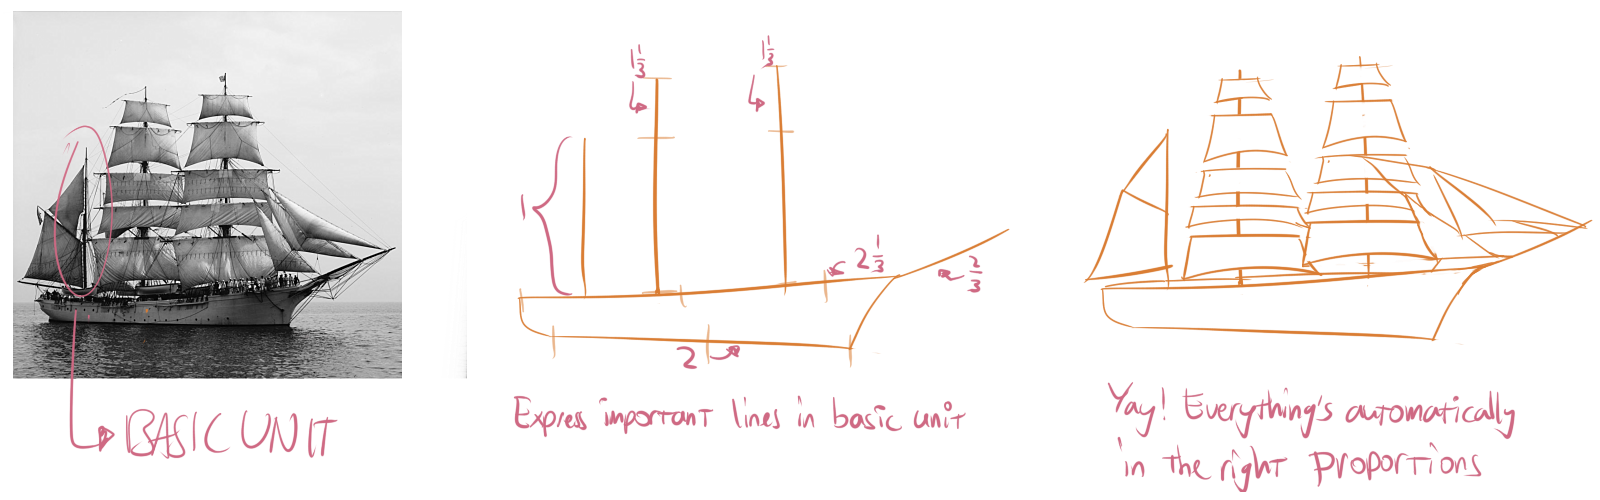 BASIC UNIT
1 1/3
1 1/3
1
2 1/3
2/3
2
Express important lines in basic unit
Yay! Everything's automatically
in the right proportions